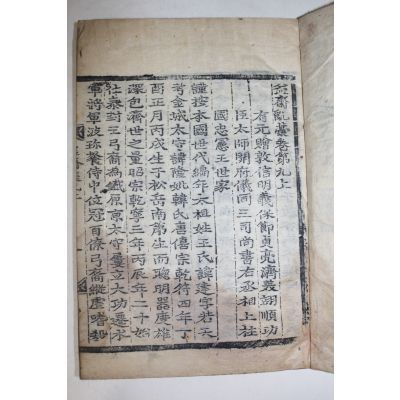 益齋亂藁卷第九上
有元贈敦信明義保節貞亮濟美翊順功
臣太師開府儀同三司尚書右丞相上柱
國忠憲王世家
謹按本國世代編年太祖姓王氏諱建字若天
考金城太守諱隆妣韓氏唐僖宗乾符四年丁
酉正月丙戌生于松岳南第生而聰明器度雄
深包濟世之量昭宗乾寧三年丙辰年二十始
仕泰封王弓裔為鐵原京太守屢立大功遷水
軍將軍波珍餐侍中位冠百僚弓裔縱虐嗜殺